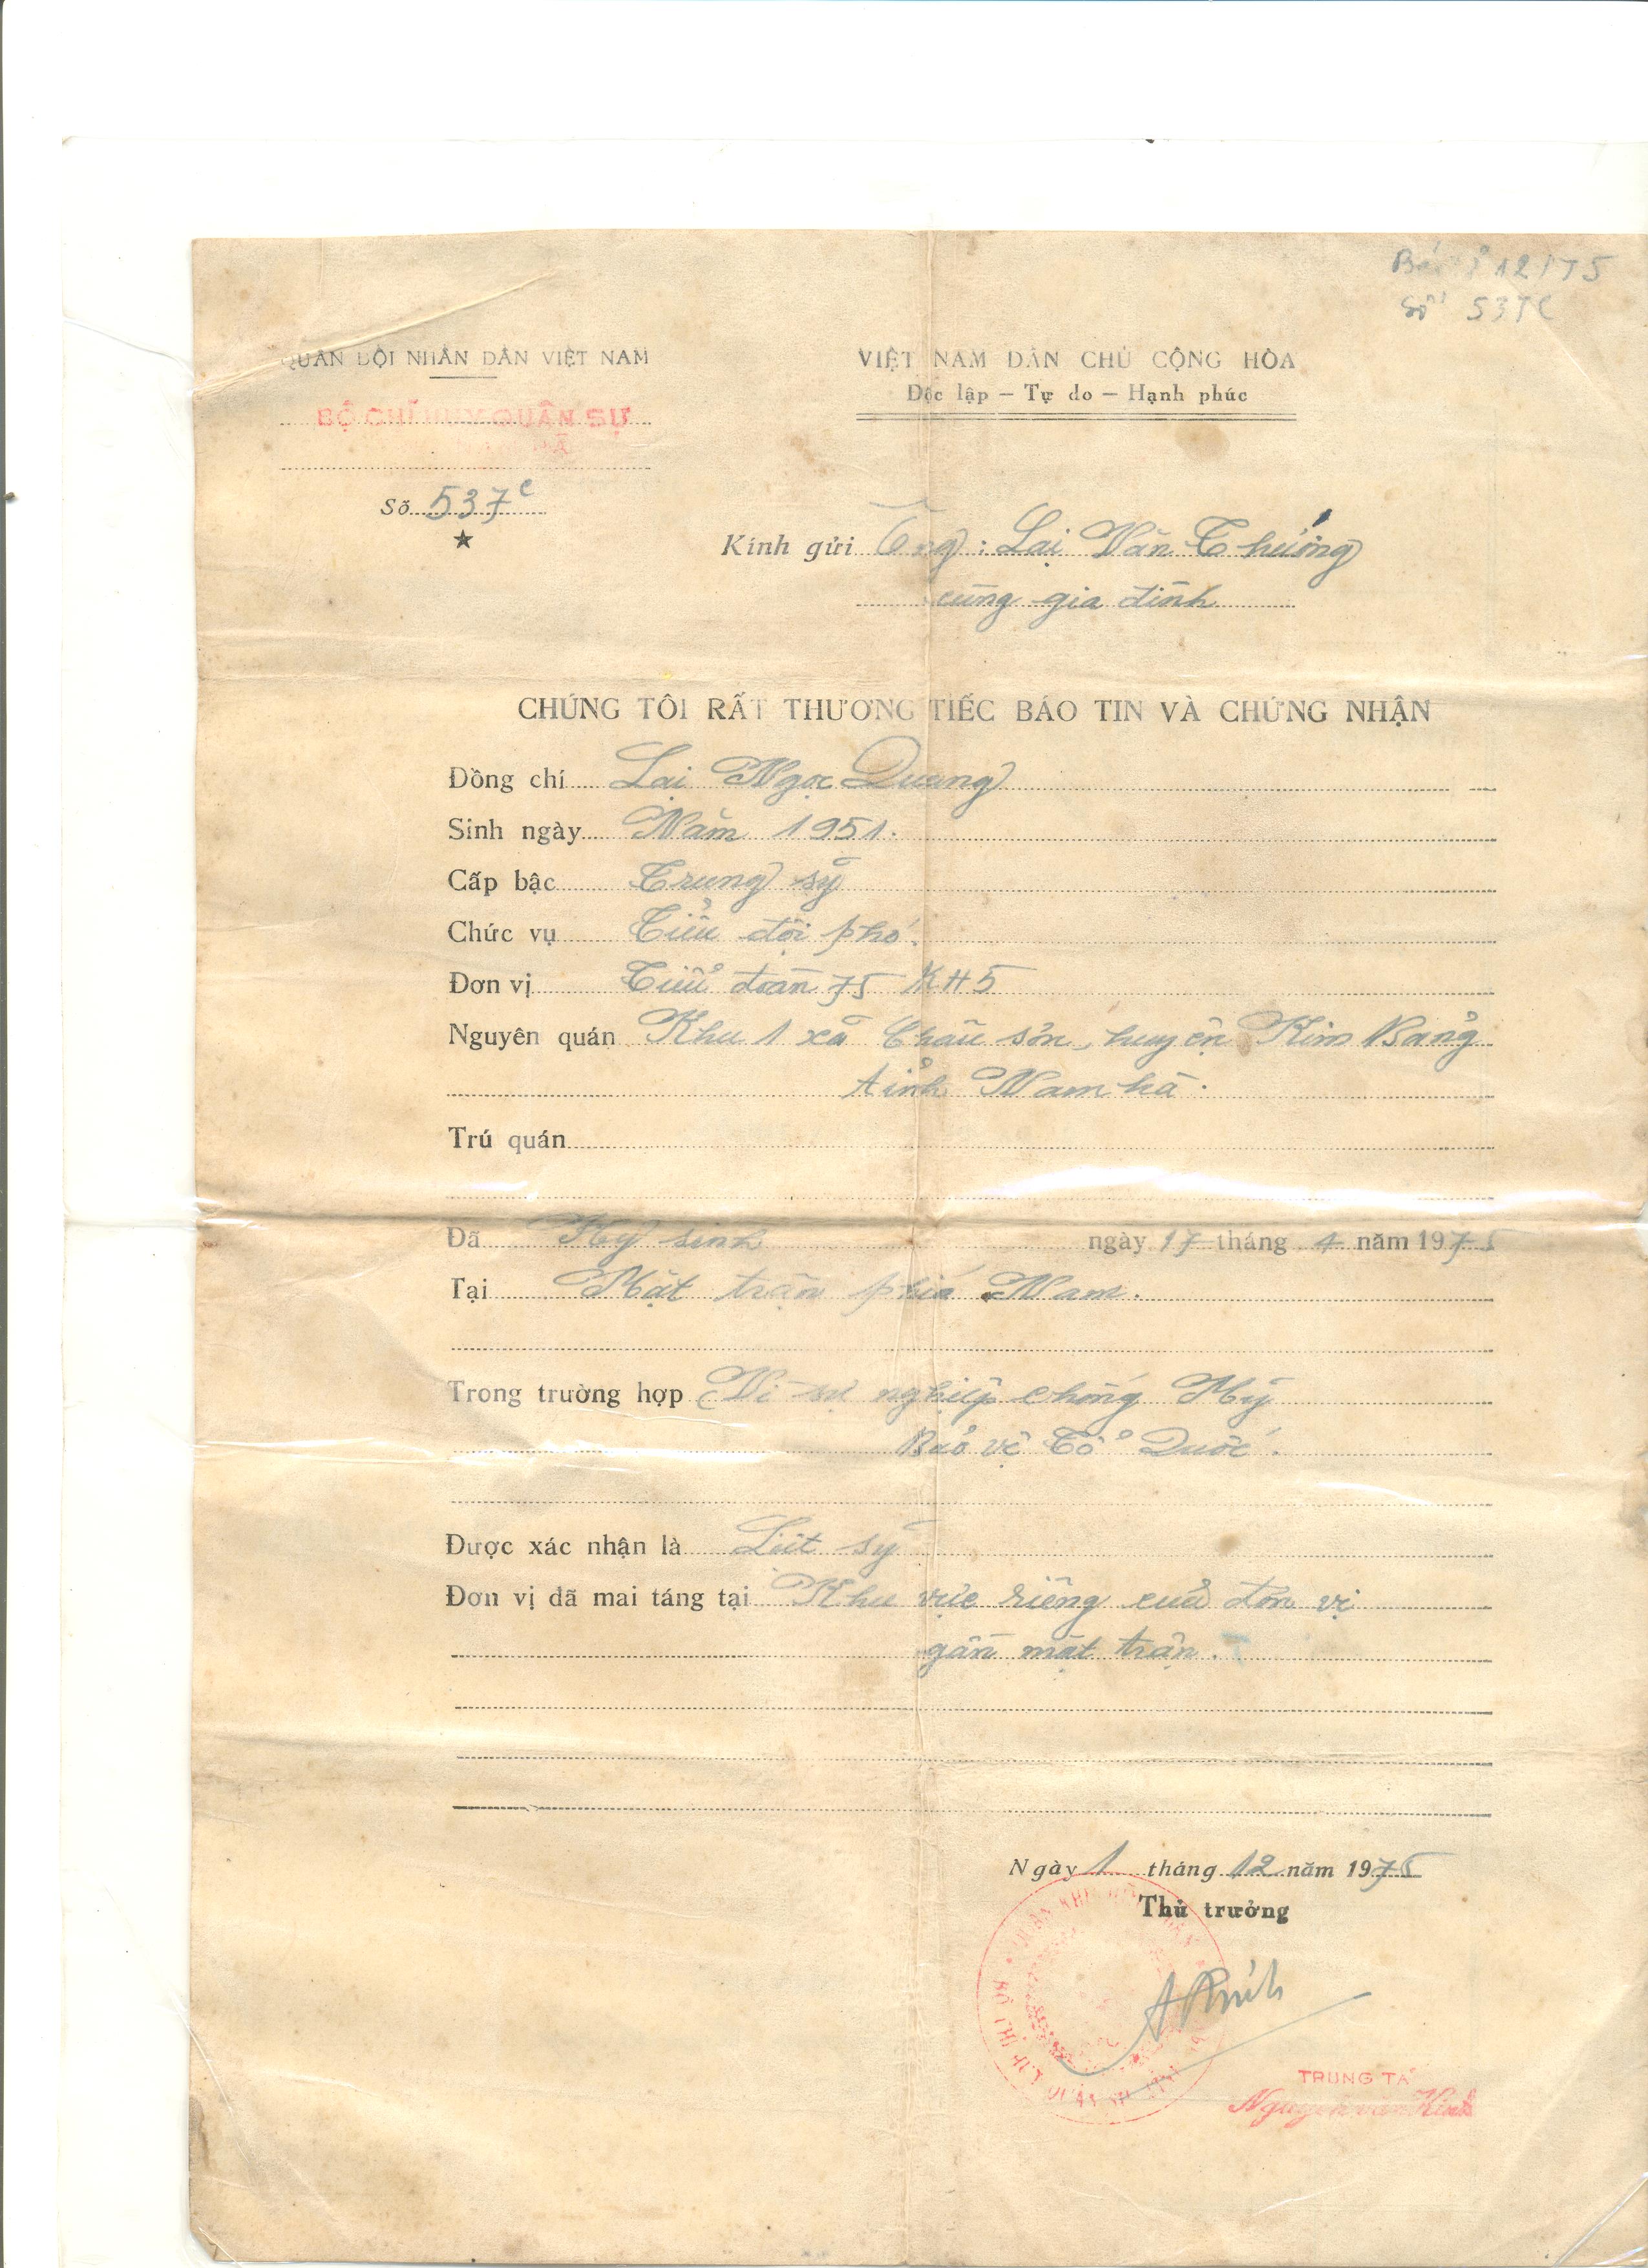 12/75
Số 537C
QUÂN ĐỘI NHÂN DÂN VIỆT NAM
BỘ CHỈ HUY QUÂN SỰ
Số 537c
★
VIỆT NAM DÂN CHỦ CỘNG HÒA
Độc lập — Tự do — Hạnh phúc
Kính gửi Ông: Lại Văn Thưởng
cùng gia đình
CHÚNG TÔI RẤT THƯƠNG TIẾC BÁO TIN VÀ CHỨNG NHẬN
Đồng chí Lại Ngọc Quang
Sinh ngày Năm 1951.
Cấp bậc Trung sỹ
Chức vụ Tiểu đội phó.
Đơn vị Tiểu đoàn 75 KH5
Nguyên quán Khu 1 xã Châu sơn, huyện Kim Bảng
tỉnh Nam hà.
Trú quán
Đã Hy sinh ngày 17 tháng 4 năm 1975
Tại Mặt trận phía Nam.
Trong trường hợp Vì sự nghiệp chống Mỹ
Bảo vệ Tổ Quốc.
Được xác nhận là Liệt sỹ
Đơn vị đã mai táng tại Khu vực riêng của đơn vị
gần mặt trận.
Ngày 1 tháng 12 năm 1975
Thủ trưởng
TRUNG TÁ
Nguyễn văn Kinh